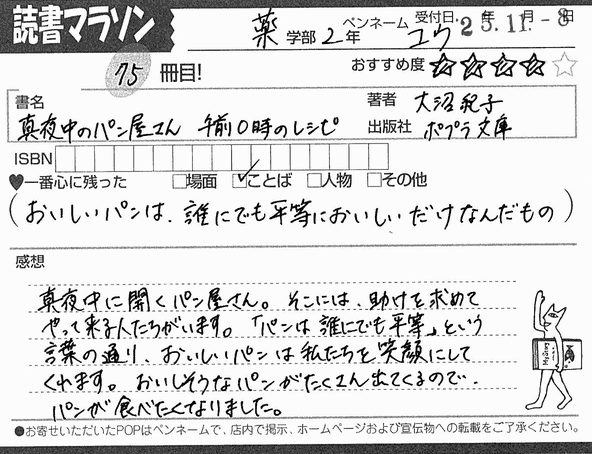 読書マラソン
薬 学部 2 年 ペンネーム ユウ 受付日: 25年11月-8日
75 冊目! おすすめ度 ★★★★☆
書名 著者 大沼紀子
真夜中のパン屋さん 午前0時のレシピ 出版社 ポプラ文庫
ISBN
♥一番心に残った □場面 ☑ことば □人物 □その他
(おいしいパンは、誰にでも平等においしいだけなんだもの)
感想
真夜中に開くパン屋さん。そこには、助けを求めて
やって来る人たちがいます。「パンは誰にでも平等」という
言葉の通り、おいしいパンは私たちを笑顔にして
くれます。おいしそうなパンがたくさん出てくるので、
パンが食べたくなりました。
●お寄せいただいたPOPはペンネームで、店内で掲示、ホームページおよび宣伝物への転載をご了承ください。